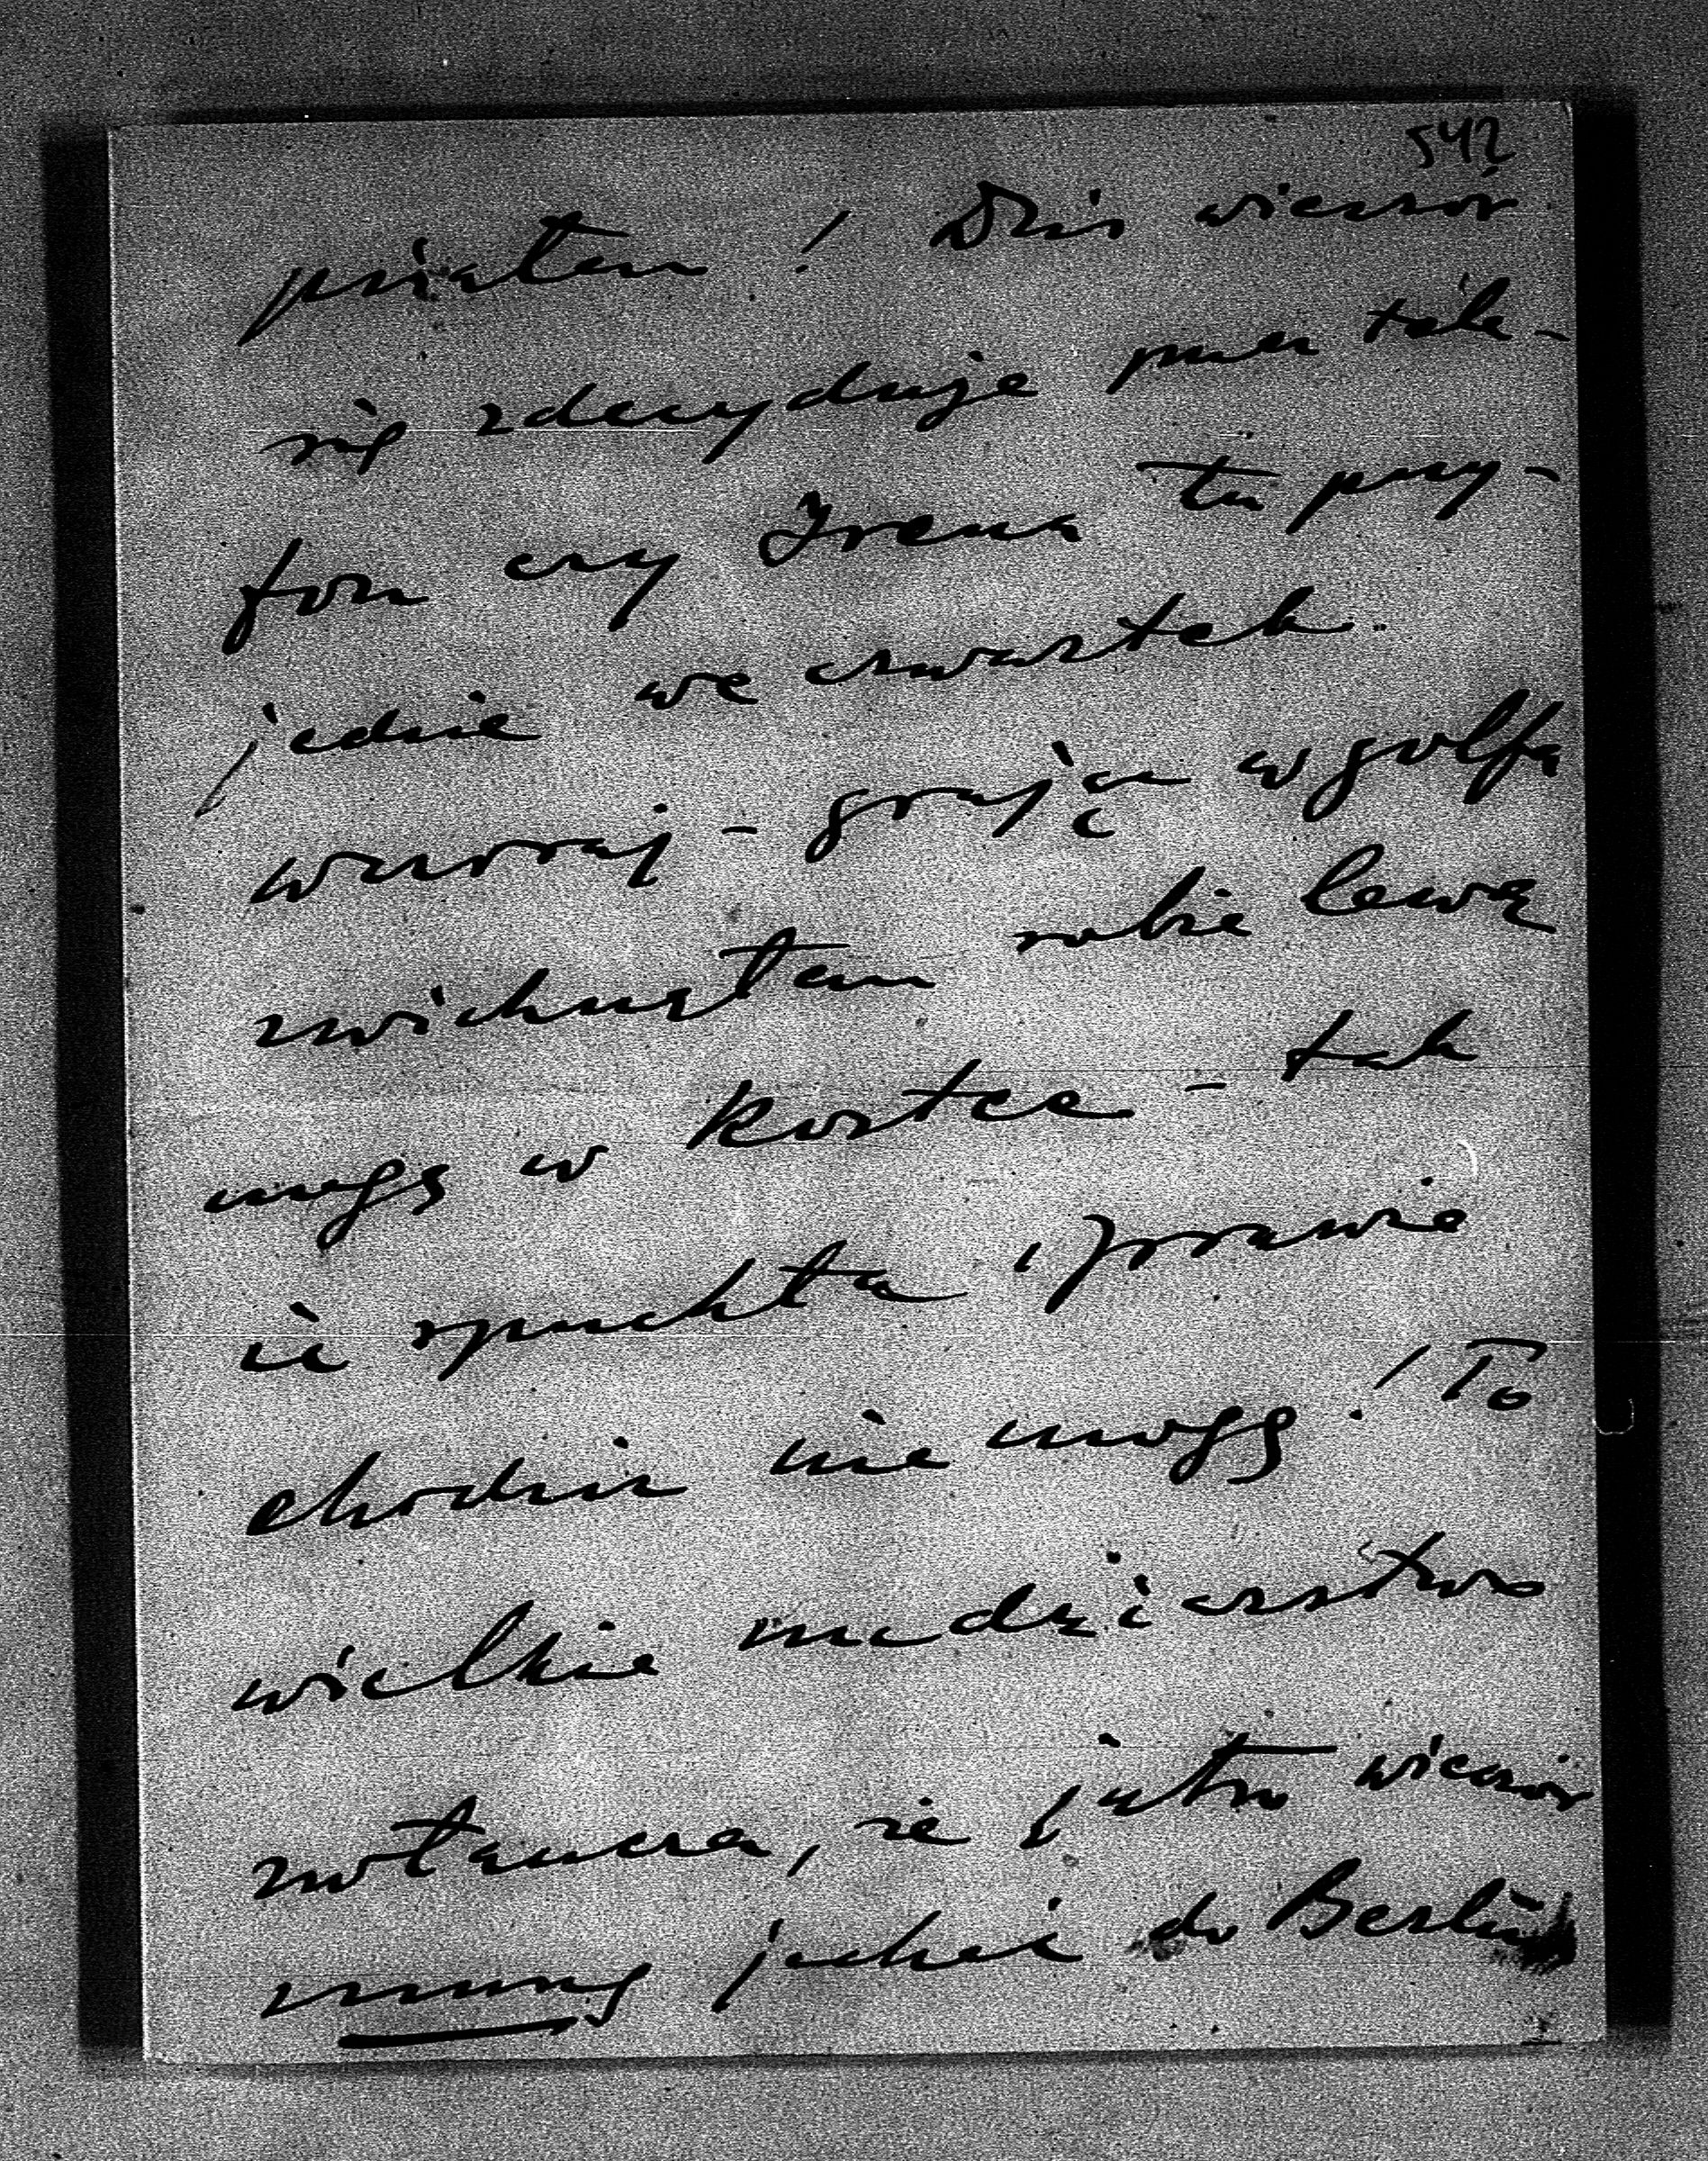 542
psiałem! Dziś wieczór
się zdecyduje przez tele-
fon czy Irena tu przy-
jedzie we czwartek.
wczoraj - grając w golfa
zwichnąłem sobie lewą
nogę w kostce - tak
iż spuchła i prawie
chodzić nie mogę! To
wielkie
zwłaszcza, że jutro wieczór
muszę jechać do Berlina